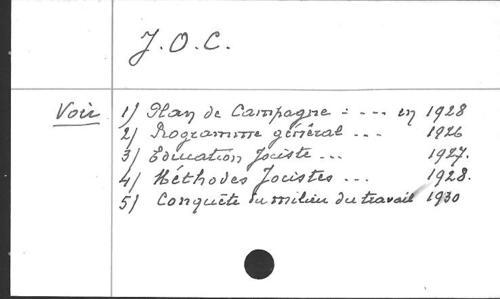 J.O.C.
Voir 1) Plan de Campagne : --- en 1928
2) Programme général --- 1926
3) Education Jociste --- 1927.
4) Méthodes Jocistes --- 1928.
5) Conquête du milieu du travail 1930